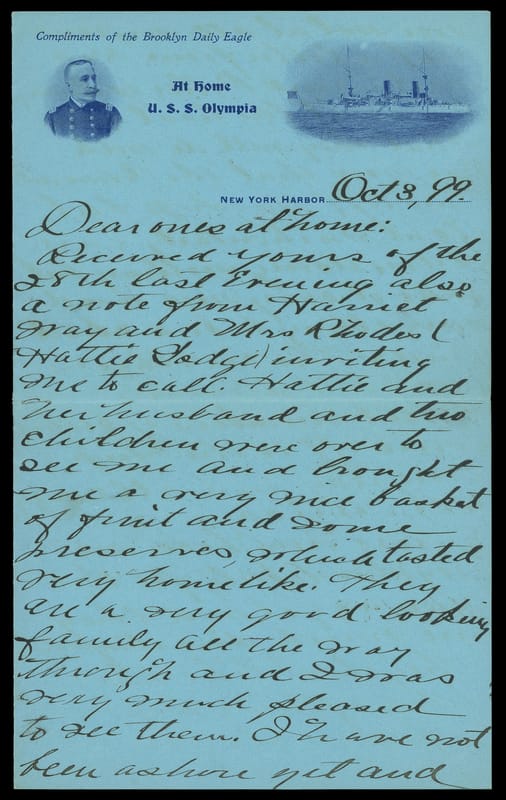 Compliments of the Brooklyn Daily Eagle
At Home
U. S. S. Olympia
NEW YORK HARBOR Oct 3, 99.
Dear ones at home:
Received yours of the
28th last Evening also
a note from Harriet
Way and Mrs Rhodes (
Hattie Lodge) inviting
me to call. Hattie and
her husband and two
children were over to
see me and brought
me a very nice basket
of fruit and some
preserves, which tasted
very homelike. They
are a very good looking
family all the way
through and I was
very much pleased
to see them. I have not
been ashore yet and